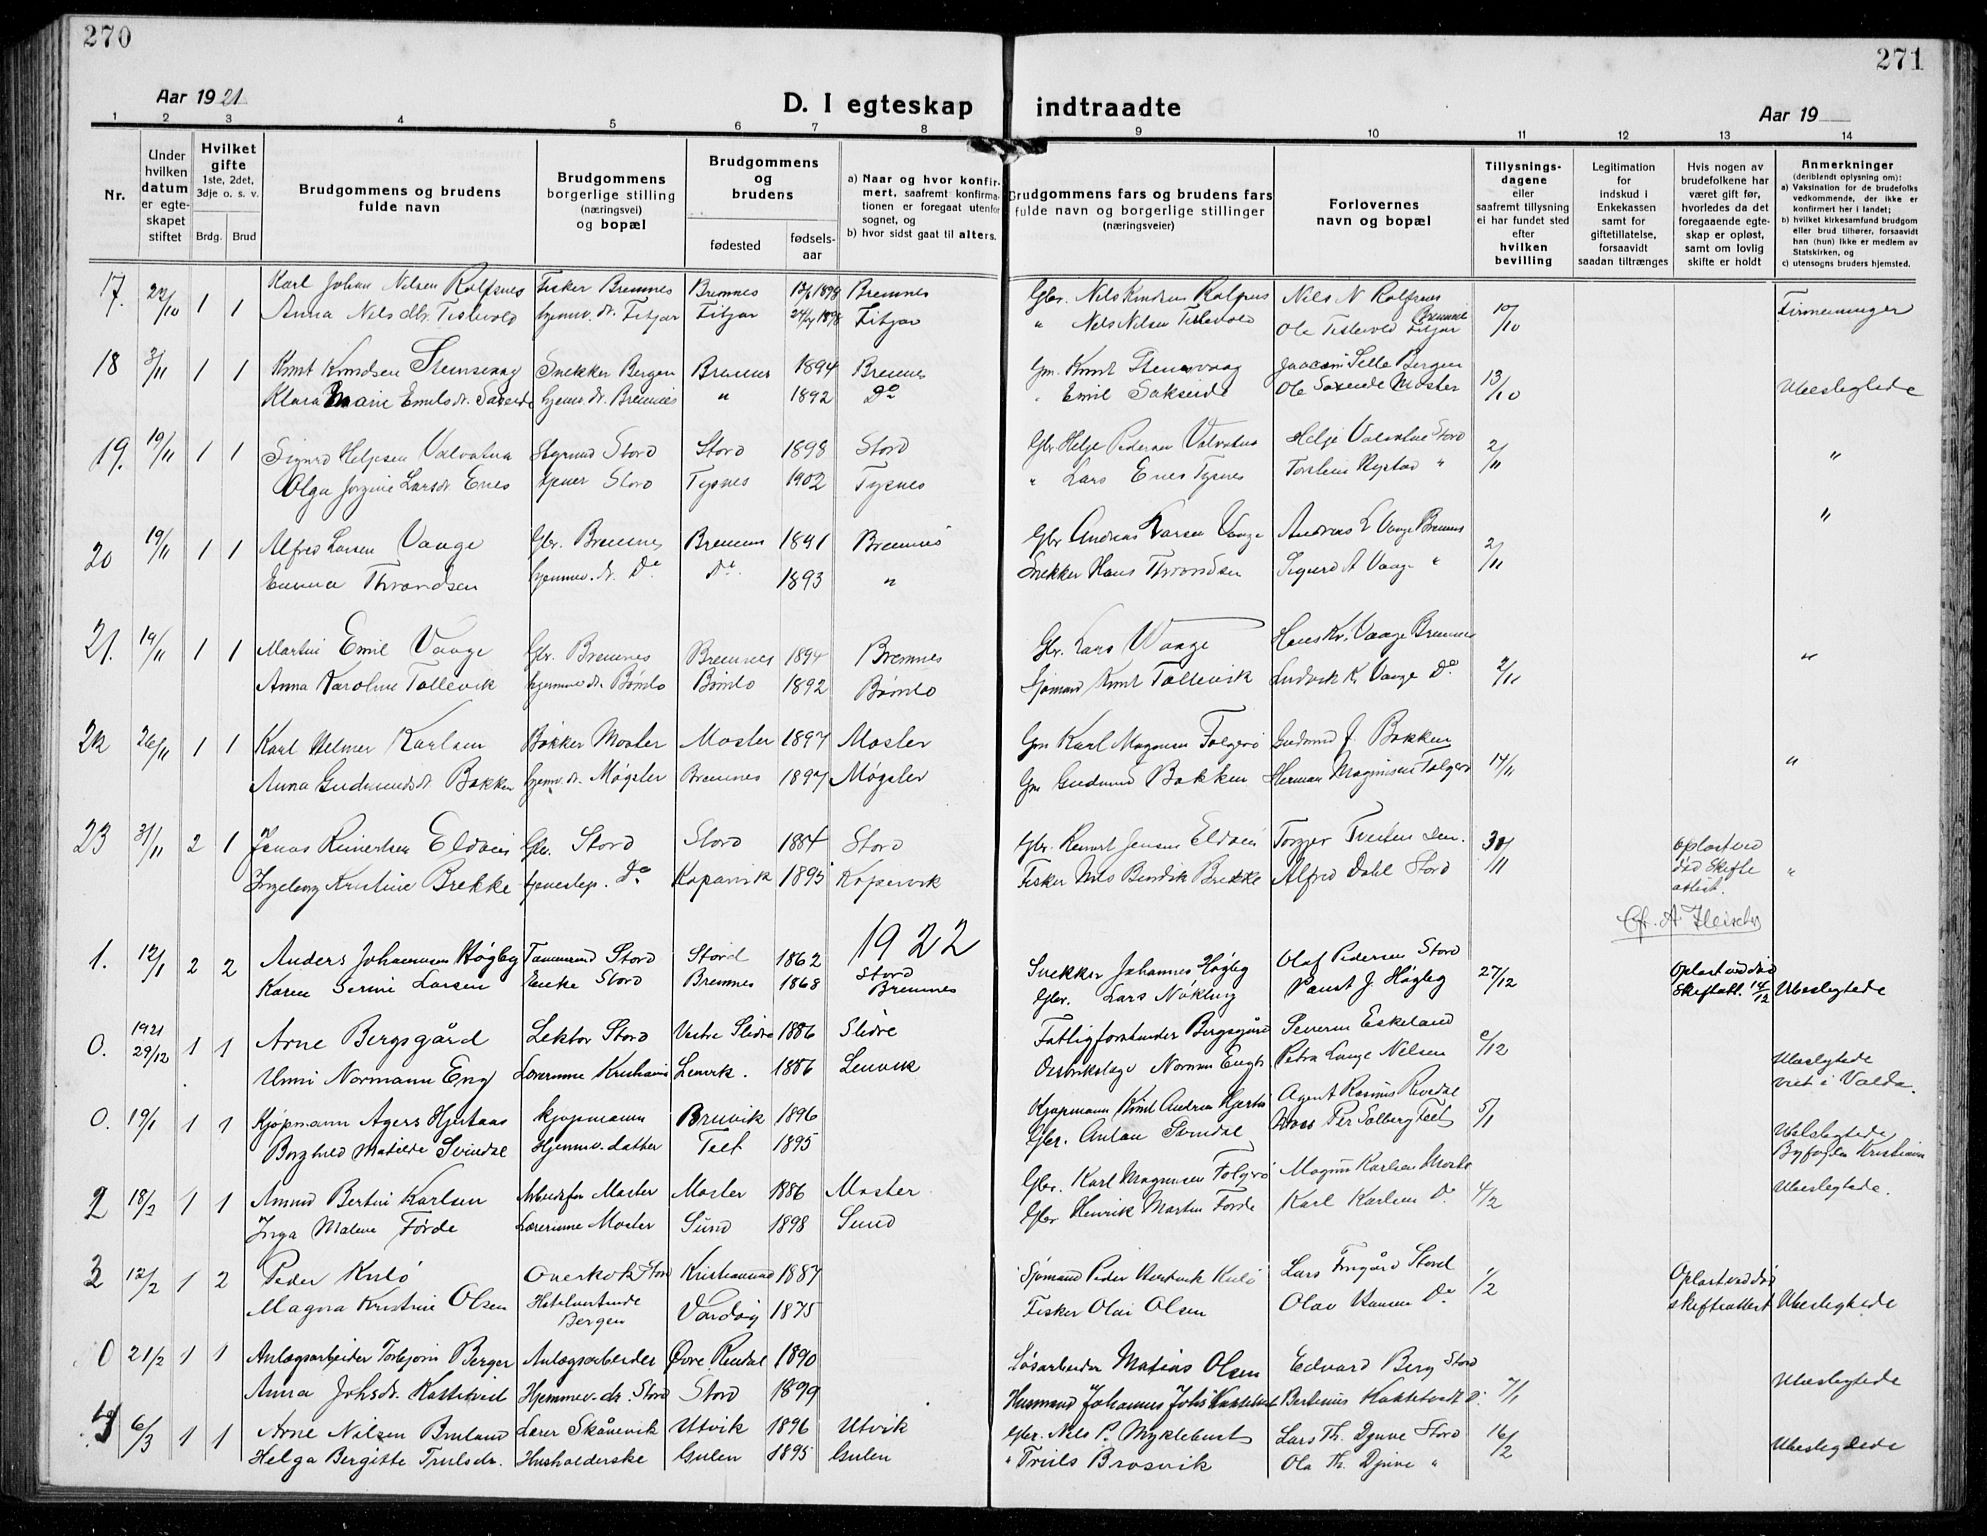 270
271
Aar 1921
D. I egteskap indtraadte
Aar 19
1 2 3 4 5 6 7 8 9 10 11 12 13 14
Nr.
Under hvilken datum er egteskapet stiftet
Hvilket gifte 1ste, 2det, 3dje o. s. v.
Brdg. Brud
Brudgommens og brudens fulde navn
Brudgommens borgerlige stilling (næringsvei) og bopæl
Brudgommens og brudens
fødested fødselsaar
a) Naar og hvor konfirmert, saafremt konfirmationen er foregaat utenfor sognet, og
b) hvor sidst gaat til alters.
Brudgommens fars og brudens fars fulde navn og borgerlige stillinger (næringsveier)
Forlovernes navn og bopæl
Tillysningsdagene eller saafremt tillysning ei har fundet sted efter hvilken bevilling
Legitimation for indskud i Enkekassen samt for giftetillatelse, forsaavidt saadan tiltrænges
Hvis nogen av brudefolkene har været gift før, hvorledes da det foregaaende egteskap er opløst, samt om lovlig skifte er holdt
Anmerkninger (deriblandt oplysning om):
a) Vaksination for de brudefolks vedkommende, der ikke er konfirmert her i landet;
b) hvilket kirkesamfund brudgom eller brud tilhører, forsaavidt han (hun) ikke er medlem av Statskirken, og
c) utensogns bruders hjemsted.
17. 22/10 1 Karl Johan Nilsen Rolfsnes Fisker Bremnes Bremnes 1898 Bremnes Gbr. Nils Knudsen Rolfsnes Nils N Rolfsnes Bremnes 10/10
1 Anna Nilsdtr. Tislevold hjemv. dr. Fitjar Fitjar 1898 Fitjar " Nils Nilsen Tislevold Ole Tislevold Fitjar
18 3/11 1 1 Knut Knudsen Stensvaag Snekker Bergen Bremnes 1894 Bremnes Gm. Knut Stensvaag Bergen 13/10
Klara Marie Emilsdr. hjemv. dr. Bremnes " 1892 Do " Emil Ole Moster Ubeslegtede
19. 19/11 1 1 Sigurd Heljesen Valvatna Styrmand Stord Stord 1898 Stord Gbr Helje Pedersen Valvatna Helje Valvatne Stord 2/11 "
Olga Jorgine Larsdr. Enes tjener Stord Tysnes 1902 Tysnes " Lars Enes Tysnes Torstein "
20 19/11 1 1 Alfred Larsen Vaage Gbr. Bremnes Bremnes 1891 Bremnes Gbr Andreas Larsen Vaage Andreas L Vaage Bremnes 2/11 "
Emma Throndsen hjemmev. dr. Do Do. 1893 " Snekker Hans Throndsen Sigurd A Vaage "
21. 19/11 1 1 Martin Emil Vaage Gbr. Bremnes Bremnes 1894 Bremnes Gbr. Lars Waage Hans Kr. Vaage Bremnes 2/11 "
Anna Karoline Tollevik hjemmv. dr. Bømlo Bømlo 1892 Bømlo Sjømand Knut Tollevik Ludvik K. Vaage Do
22 26/11 1 1 Karl Helmer Karlsen Bøkker Moster Moster 1897 Moster Gm Karl Magnusen Folgerø Gudmund J. Bakken 14/11 "
Anna Gudmundsdr. Bakken hjemv. dr. Møgster Bremnes 1897 Møgster Gm Gudmund Bakken Herman Magnusen Folgerø
23 31/11 2 1 Jonas Reinertsen Eldøen Gbr. Stord Stord 1884 Stord Gbr. Reinert Jensen Eldøen Torger 30/11 Opløst ved død Skifteattest. "
Ingeborg Kristine Brekke tjenestep. Do Kopervik 1895 Kopervik Fisker Nils Bendik Brekke Alfred Dahl Stord
1922
1. 12/1 2 2 Anders Johannesen Høgby Tømmermd Stord Stord 1862 Stord Snekker Johannes Høgby Olaf Pedersen Stord 27/12 Opløst ved død Skifteatt. 14/12 Ubeslegtede
Karen Serine Larsen Enke Stord Bremnes 1868 Bremnes Gbr. Lars Nøkling J. Høgby
0. 1921 29/12 1 1 Arne Bergsgård Lektor Stord Vestre Slidre 1886 Slidre Fattigforstander Bergsgård Severin Eskeland /12 Ubeslegtede
Unni Normann Eng Lærerinne Kristiania Lenvik. 1886 Lenvik Distrikslæge Norman Eng Petra Lange Nilsen viet i Volda.
0. 19/1 1 1 Kjøpmann Agers Hjertaas kjøpmann Bruvik 1896 Kjøpmann Knut Andreas Agent Rasmus 5/1 Ubeslegtede
Borghild Matilde Svindal Hjemmv. datter Teet 1895 Gbr. Anton Svindal Per Solberg Teet Byfogden Kristiania
2 18/2 1 1 Amund Bertin Karlsen Arbeidsfor. Moster Moster 1886 Moster Gbr. Karl Magnusen Folgerø Magnus Karlsen Moster 4/2 Ubeslegtede.
Inga Malene Førde Lærerinne Moster Sund 1898 Sund Gbr Henrik Martin Førde Karl Karlsen Do
3 12/2 1 2 Peder Kulø Overkok Stord Kristiansund 1887 Sjømand Peder Kulø Lars Stord 1/2 Opløst ved død skifteattest Ubeslegtede
Magna Kristine Olsen Hotelvertinde Bergen 1875 Fisker Olai Olsen Olav Hansen Do
0 21/2 1 1 Anlægsarbeider Torbjørn Berger Anlægsarbeider Øvre Rendal 1890 Løsarbeider Matias Olsen Edvard Berg Stord 7/1 Ubeslegtede
Anna Johsdr. Kattetveit Hjemmev. dr. Stord Stord 1899 Husmand Johannes Johs Kattetveit Bertinus Kattetvedt
6/3 1 1 Arne Nilsen Bruland Lærer Skånevik Utvik 1896 Utvik Gbr. Nils P. Myklebust Lars Th. Djuve Stord 16/2 Ubeslegtede
Helga Bergitte Trulsdr. Husholderske Gulen 1895 Gulen " Truls Brosvik Ola Th. Djuve "